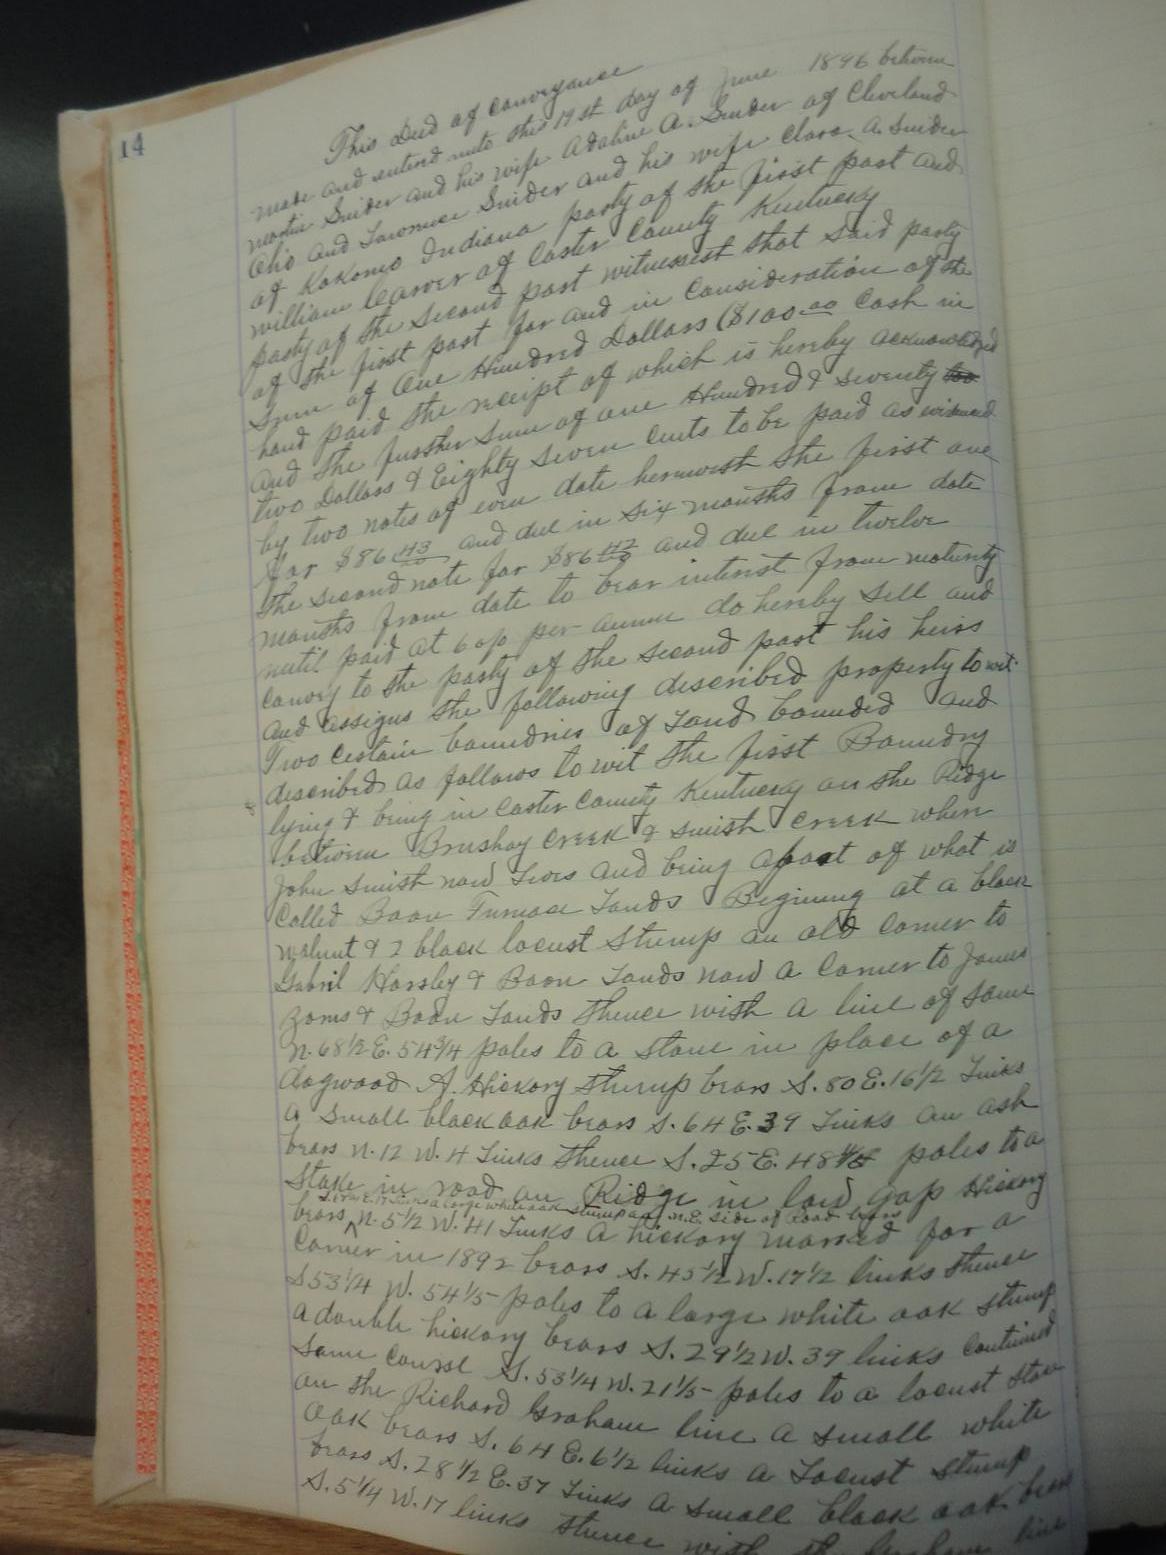 14
This Deed of conveyance
made and entered into this 19st day of June 1896 between
Martin Snider and his wife Adaline A. Snider of Cleveland
Ohio and Lawrence Snider and his wife Clara A. Snider
of Kokomo Indiana party of the first part and
William Carver of Carter County Kentucky
party of the second part witnesseth that said party
of the first part for and in consideration of the
Sum of One Hundred Dollars ($100.00 Cash in
hand paid the receipt of which is hereby acknowledged
and the further Sum of one Hundred & seventy too
two Dollars & Eighty Seven Cents to be paid as evidenced
by two notes of even date herewith the first one
for $86 43 and due in Six months from date
The second note for $86 42 and due in twelve
months from date to bear interest from maturity
until paid at 6 o/o per-annum do hereby Sell and
Convey to the party of the second part his heirs
and assigns the following described property to wit
Two certain boundries of Land bounded and
described as follows to wit the first Boundry
lying & being in Carter County Kentucky on the Ridge
between Brushay Creek & Smith Creek where
John Smith now Lives and being a part of what is
Called Boon Furnace Lands Begining at a black
walnut & 2 black locust Stump an old Corner to
Gabril Horsley & Boon Lands now a Corner to James
& Boon Lands thence with a line of Same
N. 68 1/2 E. 54 3/4 poles to a Stone in place of a
dogwood A. Hickory Stump bears S. 80 E. 16 1/2 Links
a Small black oak bears S. 64 E. 39 Links an ash
bears N. 12 W. 4 Links thence S. 25 E. 48 poles to a
Stake in road on Ridge in low gap Hickory
large white oak stump on N.E. side of Road bears
bears N. 5 1/2 W. 41 Links A hickory marked for a
Corner in 1892 bears S. 45 1/2 W. 17 1/2 links thence
S 53 1/4 W. 54 1/5 poles to a large white oak Stump
a double hickory bears S. 29 1/2 W. 39 links Continued
Same Course S. 53 1/4 W. 21 1/5 poles to a locust
on the Richard Graham line a small white
oak bears S. 64 E. 6 1/2 links a Locust Stump
bears S. 28 1/2 E. 37 Links a Small black oak bears
S. 5 1/4 W. 17 links thence with the Graham line